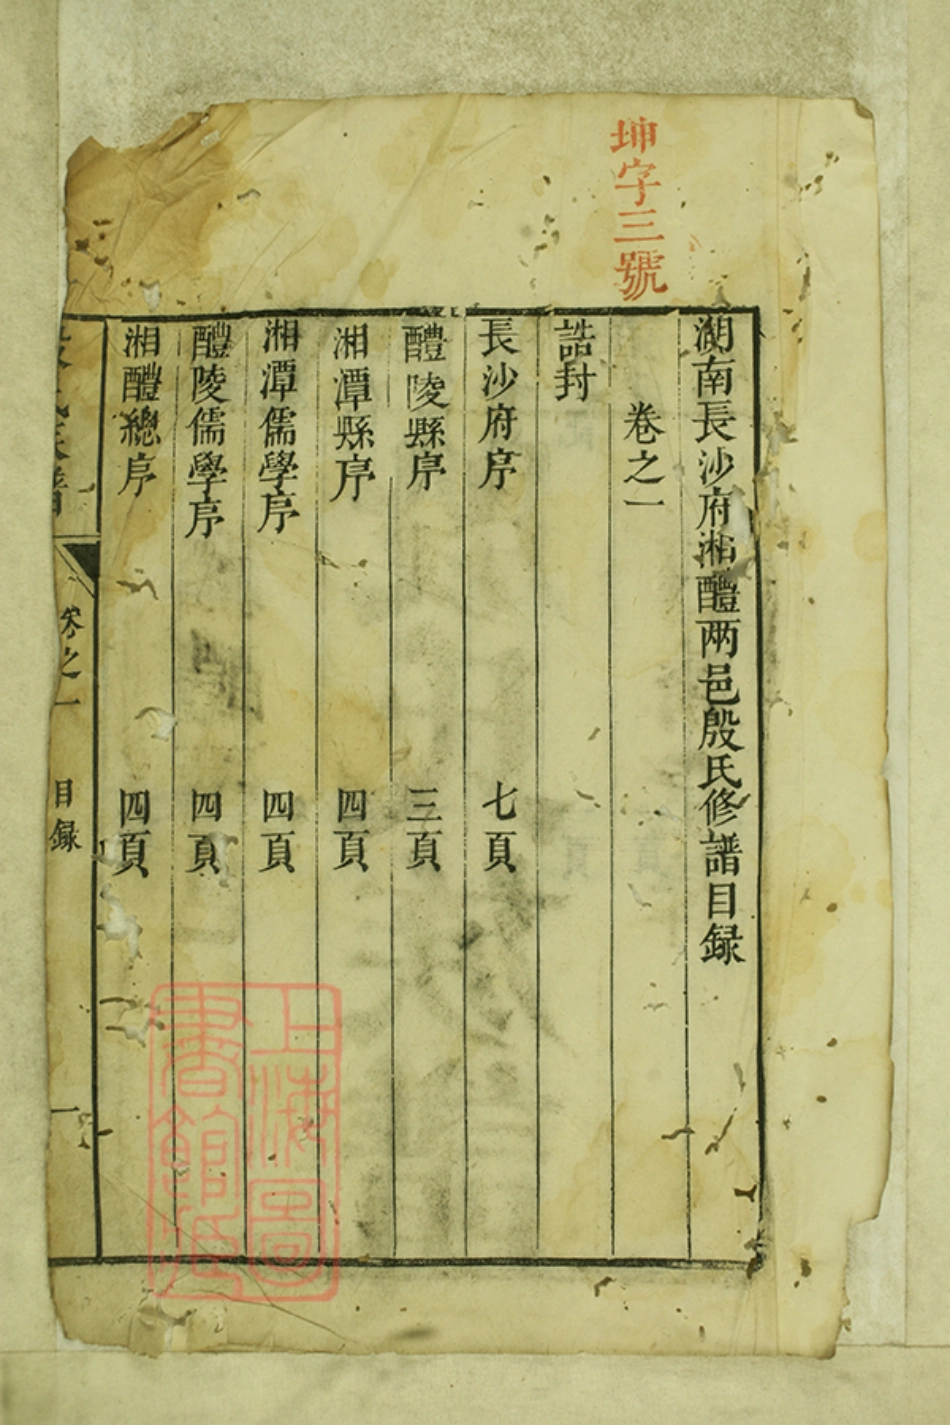 坤字三號
湖南長沙府湘醴两邑殷氏修譜目録
卷之一
誥封
長沙府序 七頁
醴陵縣序 三頁
湘潭縣序 四頁
湘潭儒學序 四頁
醴陵儒學序 四頁
湘醴總序 四頁
卷之一 目録 一
上海圖
書館藏